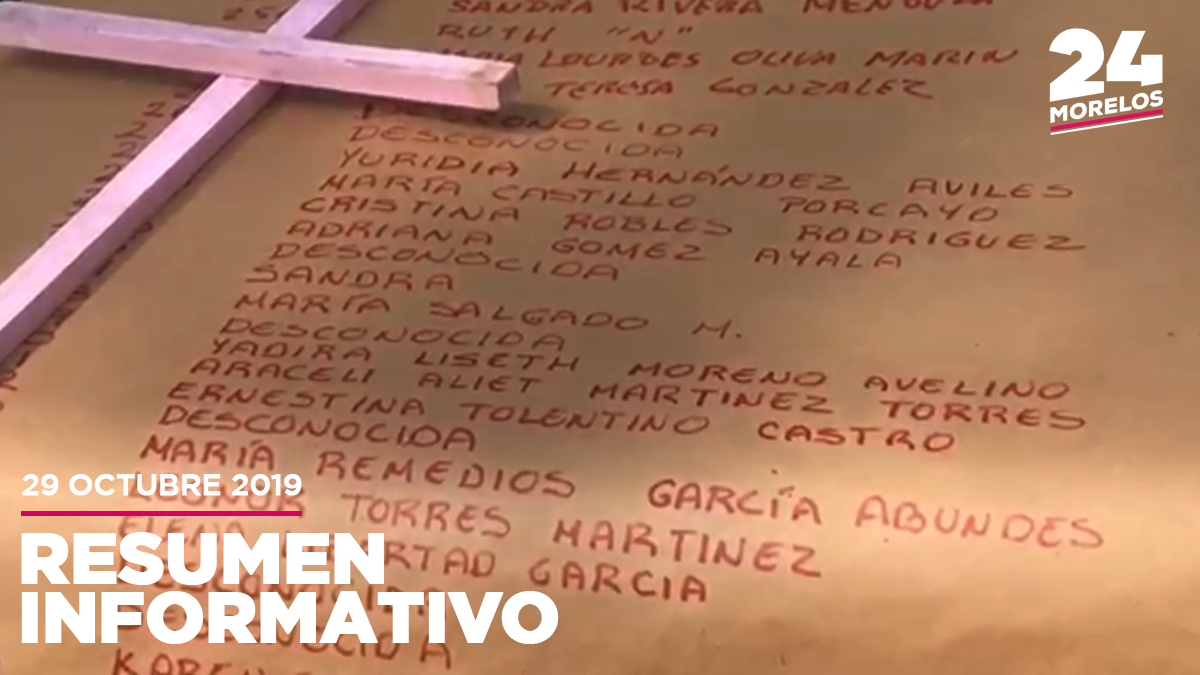 SANDRA RIVERA MENDOZA
RUTH "N"
LOURDES OLIVA MARIN
TERESA GONZALEZ
DESCONOCIDA
YURIDIA HERNÁNDEZ AVILES
MARTA CASTILLO PORCAYO
CRISTINA ROBLES RODRIGUEZ
ADRIANA GOMEZ AYALA
DESCONOCIDA
SANDRA
MARTA SALGADO M.
DESCONOCIDA
YADIRA LISETH MORENO AVELINO
ARACELI ALIET MARTINEZ TORRES
ERNESTINA TOLENTINO CASTRO
DESCONOCIDA
MARÍA REMEDIOS GARCÍA ABUNDES
LEONOR TORRES MARTINEZ
ELENA LIBERTAD GARCIA
DESCONOCIDA
DESCONOCIDA
24
MORELOS
29 OCTUBRE 2019
RESUMEN
INFORMATIVO